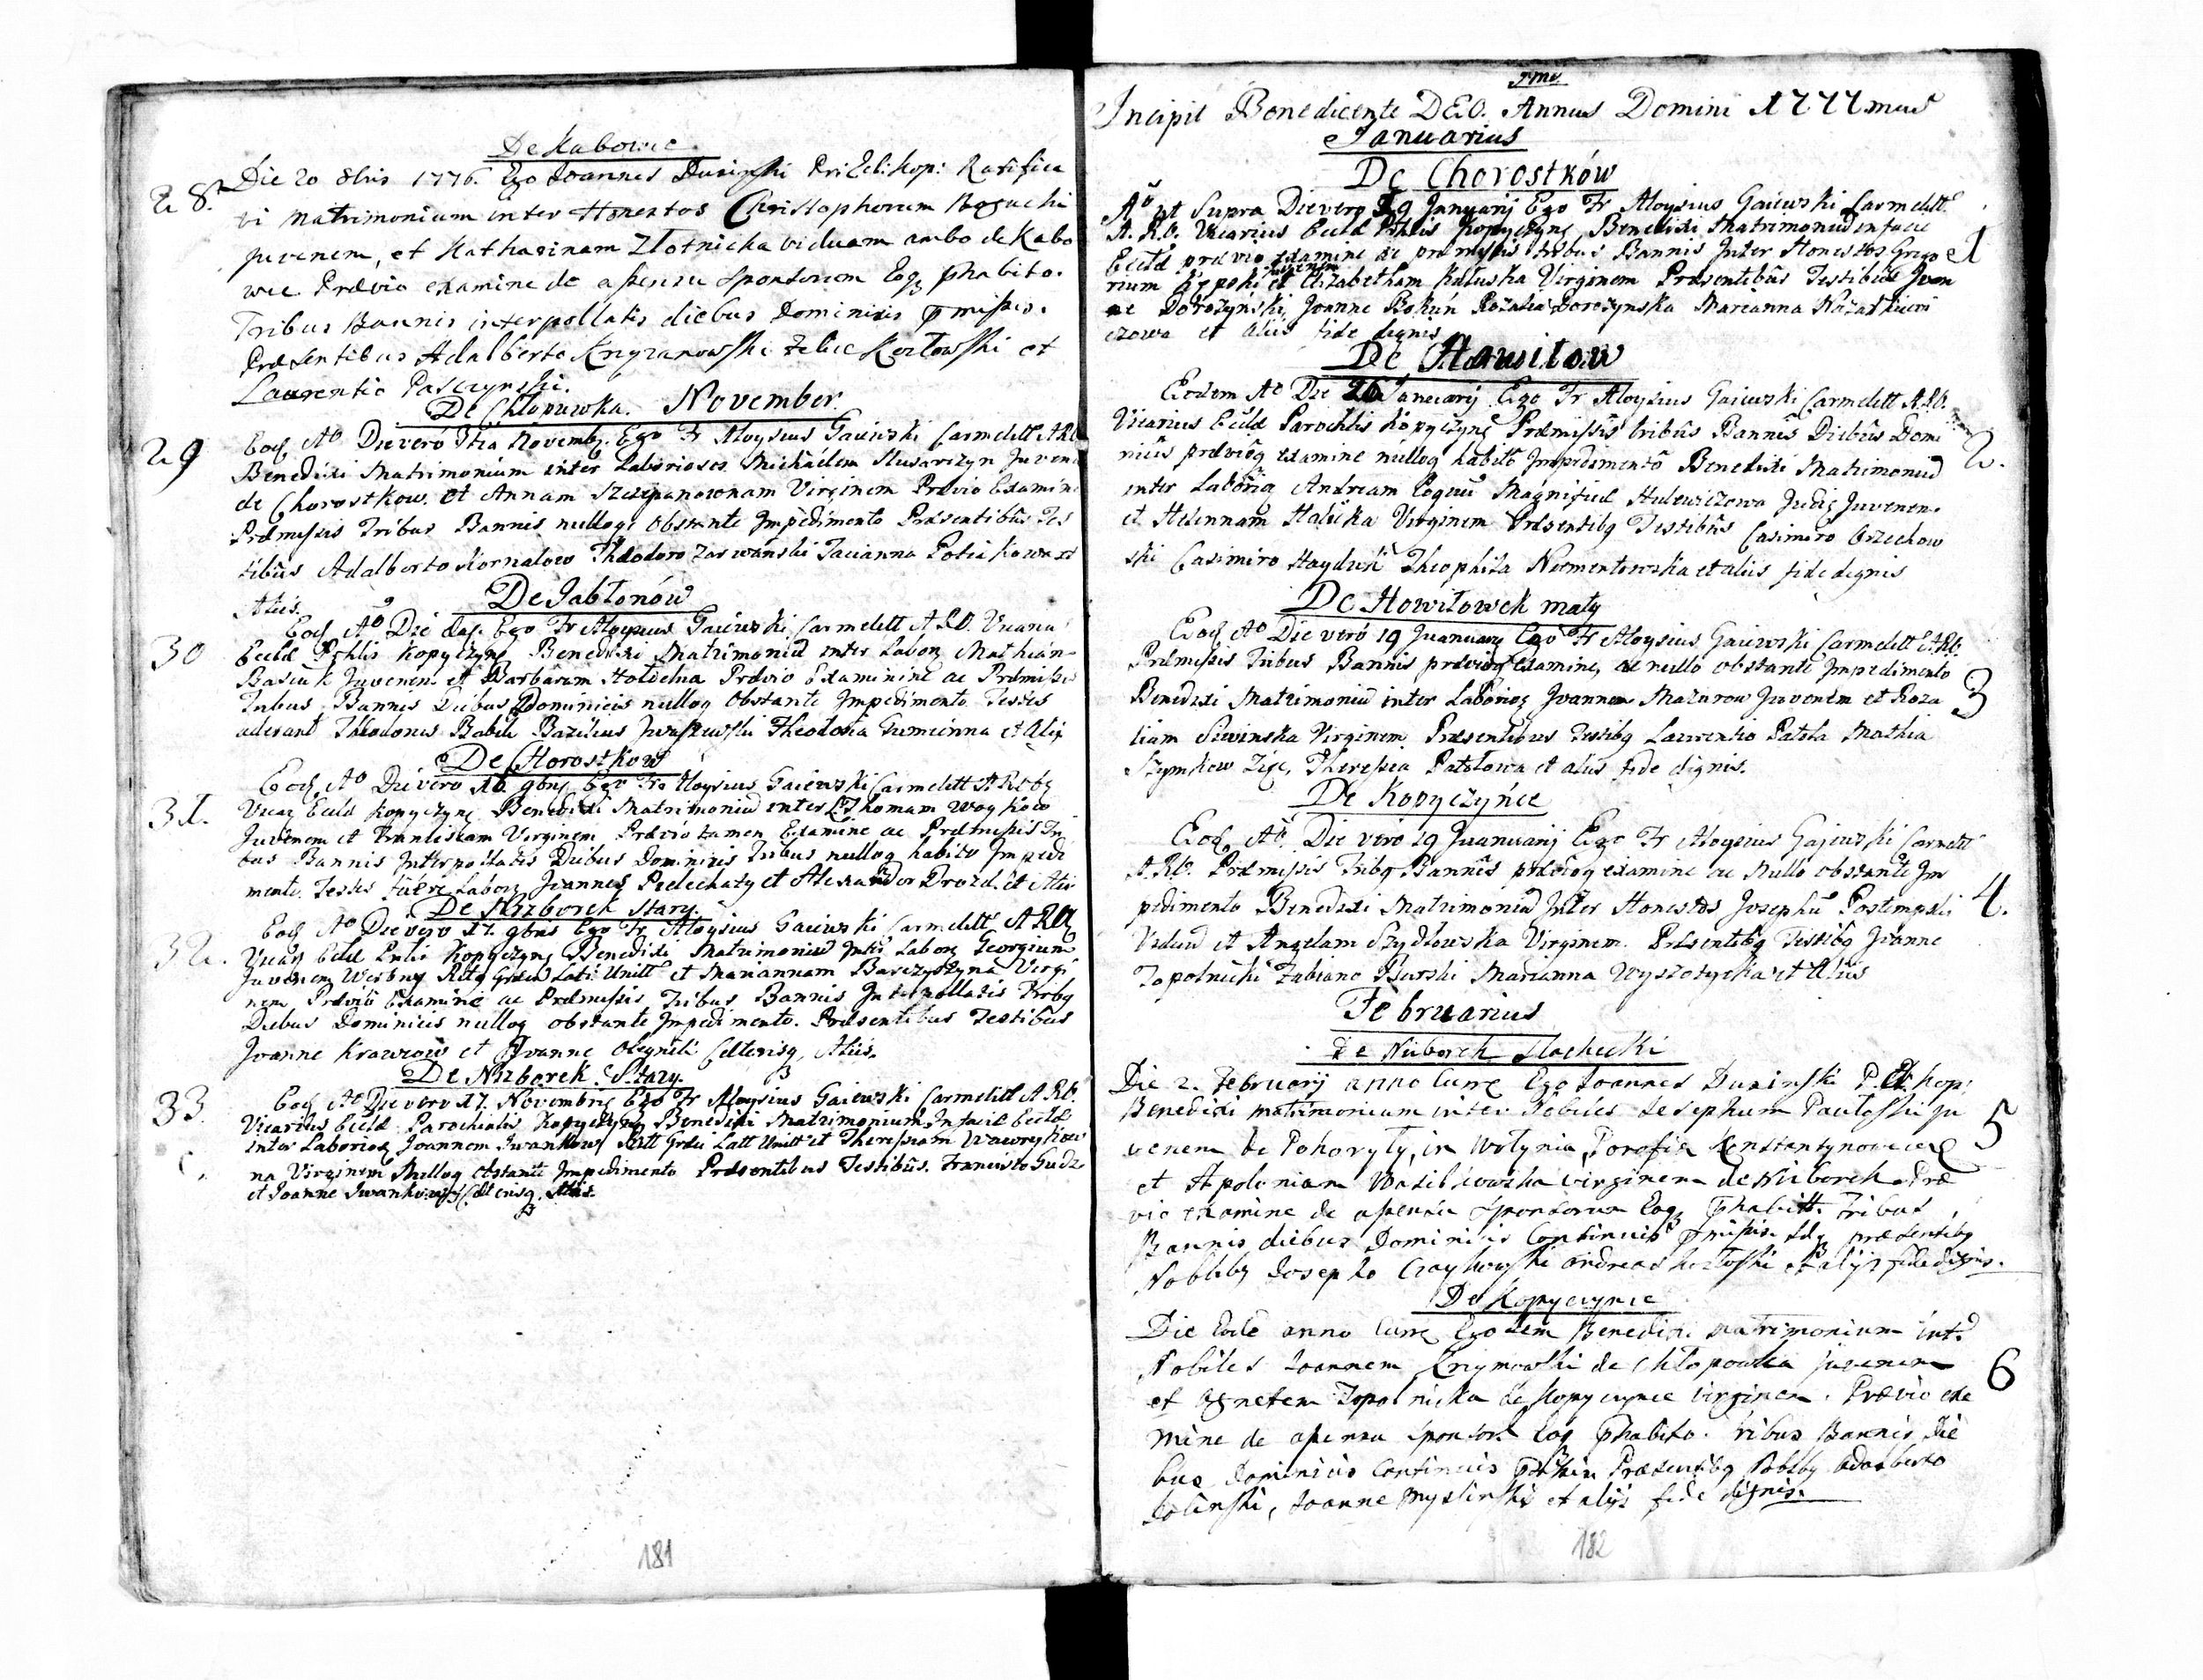 De Kabowce.
28. Die 20 8bris 1776. Ego Joannes Dusinski Kop: Ratifica
vi Matrimonium inter Honestos Christophorum Boguchi
juvenem, et Katharinam Zlotnicka viduam ambo de Kabo
wce Prævio examine de assensu sponsorum Eoq phabito.
Tribus Bannis interpollatis diebus Dominicis pmissis.
Præsentibus Adalberto Krzyzanowski Felice Kozlowski et
Laurentio Paszczynski.
De Chlopuwka. November
29 Eod Ao Die veró Novemb. Ego Fr Aloysius Gaiewski Carmelitt A R O
Benedixi Matrimonium inter Laboriosos Michaelem Slusarczyn Juvene
de Chorostkow. et Annam Szczepanownam Virginem Prævio Examine
Præmissis Tribus Bannis nulloq obstante Impedimento Præsentibus Tes
tibûs Adalberto Kornalow Theodoro Zarwanski Tacianna et
Aliis.
De Jabłonów
30 Eod Ao Die Ego Fr Aloysius Gaiewski Carmelitt A R O. Vicarius
Eccl Pchlis Kopyczync Benedixi Matrimoniu inter Labor Mathian
Basiuk Juvenem et Barbaram Holdelna Prævio Examinine ac Præmissis
Tribus Bannis Diebus Dominicis nulloq obstante Impedimento Testes
aderant Theodorus Babik Bazilius Theodosia Gumienna et Alij
De Chorostkow
31. Eod Ao Die vero 16 9bris Ego Fr Aloysius Gaiewski Carmelitt A R O
Vicar Eccl Kopyczync Benedixi Matrimoniu inter L Thomam Woykow
Juvenem et Franciscam Virginem Prævio tamen Examine ac Præmissis Tri
bus Bannis Interpollatis Diebus Dominicis Tribus nulloq habito Impedi
mento. Testes fuere Labor Joannes Pelechaty et Alexander Drozd. et Alii
De Nizborek Stary.
32. Eod Ao Die vero 17. 9bris Ego Fr Aloysius Gaiewski Carmelitt A R O
Vicar Eccl Kopyczync Benedixi Matrimoniu Inter Labor Georgium
Juvenem Ritq Græci Lati Unitt et Mariannam Barczyszyna Virgi
nem Prævio Examine ac Præmissis Tribus Bannis Interpollatis Tribq
Diebus Dominicis nulloq obstante Impedimento. Præsentibus Testibus
Joanne Krawcow et Joanne Oleynik Ceterisq Aliis.
De Nizborek Stary.
33. Eod Ao Die vero 17. Novembris Ego Fr Aloysius Gaiewski Carmelitt A R O.
Vicarius Eccl Parochialis Kopyczync Benedixi Matrimonium In facie Eccl
inter Laborios Joannem Iwankow Ritt Græci Latt Unitt et Theressiam Wawrykow
na Virginem Nulloq obstante Impedimento Præsentibus Testibûs. Francisco Gudz
et Joanne Iwankow Ceterisq Aliis.
181
Incipit Benedicente DEO. Annus Domini 1777mus
Januarius
De Chorostków
Ao ut Supra Die vero 19 Januarij Ego Fr Aloysius Gaiewski Carmelitt
A. R. O. Vicarius Eccl Pchlis Kopyczync Benedixi Matrimoniu in facie
Eccl prævio examine ac præmissis tribus Bannis Inter Honestos Grego 1
rium juvenem et Elizabetham Kaluska Virginem Præsentibûs Testibus Joan
ne Dorożyński, Joanne Bokun Rozalia Dorożynska Marianna
czowa et aliis fide dignis
De Howilow
Eodem Ao Die 26 Januarij Ego Fr Aloysius Gaiewski Carmelitt A.R.O.
Vicarius Eccl Parochlis Kopyczync Præmissis tribûs Bannis Diebûs Domi
nicis prævioq examine nulloq habito Impedimento Benedixi Matrimoniu 2.
inter Laborios Andream Magnifici Hulewiczowa Juvenem
et Helennam Halicka Virginem Præsentibq Testibûs Casimiro Orzechow
ski Casimiro Hayduk Theophila Niementowska et aliis fide dignis
De Howilowek maly
Eod Ao Die veró 19 Juanuarij Ego Fr Aloysius Gaiewski Carmelitt A.R.O.
Præmissis Tribus Bannis prævioq examine, ac nullo obstante Impedimento
Benedixi Matrimoniu inter Laborios Joannem Mazurow Juvenem et Roza 3
liam Siwinska Virginem Præsentibus Testibq Laurentio Patola Mathia
Szymkow Theressia Patolowa et aliis fide dignis.
De Kopyczyńce
Eod Ao. Die vero 19 Juanuarij Ego Fr Aloysius Gajewski Carmelitt
A.R.O. Præmissis Tribq Bannis prævioq examine ac Nullo obstante Im
pedimento Benedixi Matrimoniu Inter Honestos Josephu Postempski 4.
Viduu et Angelam Szydłowska Virginem. Præsentibq Testibq Joanne
Topolnicki Fabiano Burski Marianna Wyszotycka et Aliis
Februarius
De Niżborek Szlachecki
Die 2. Februarij anno Curre Ego Joannes Dusinski P. Kop:
Benedixi matrimonium inter Nobiles Josephum Pawloski ju 5
venem de Pohoryly, in Wolynia, Parafia Konstantynowiecen
et Apoloniam Wasilkowska virginem de Niżborek Præ
vio examine de assensu sponsorum Eoq phabitt. Tribus
Bannis diebus Dominicis Continuis pmissis. præsentibq
Noblibq Josepho Czaykowski Andreas Kozloski et alijs fide dignis.
De Kopyczynce
Die Eode anno Curre Ego idem Benedixi matrimonium int.
Nobiles Joannem Krzymowski de Chlopowka juvenem 6
et Agnetem Topolnicka de Kopyczynce virginem. Prævio exa
mine de assensu sponsor Eoq phabito. tribus Bannis Die
bus Dominicis Continuis pmissis Præsentibq Noblibq Adalberto
Jolinski, Joanne Myslinski et alijs fide dignis.
182